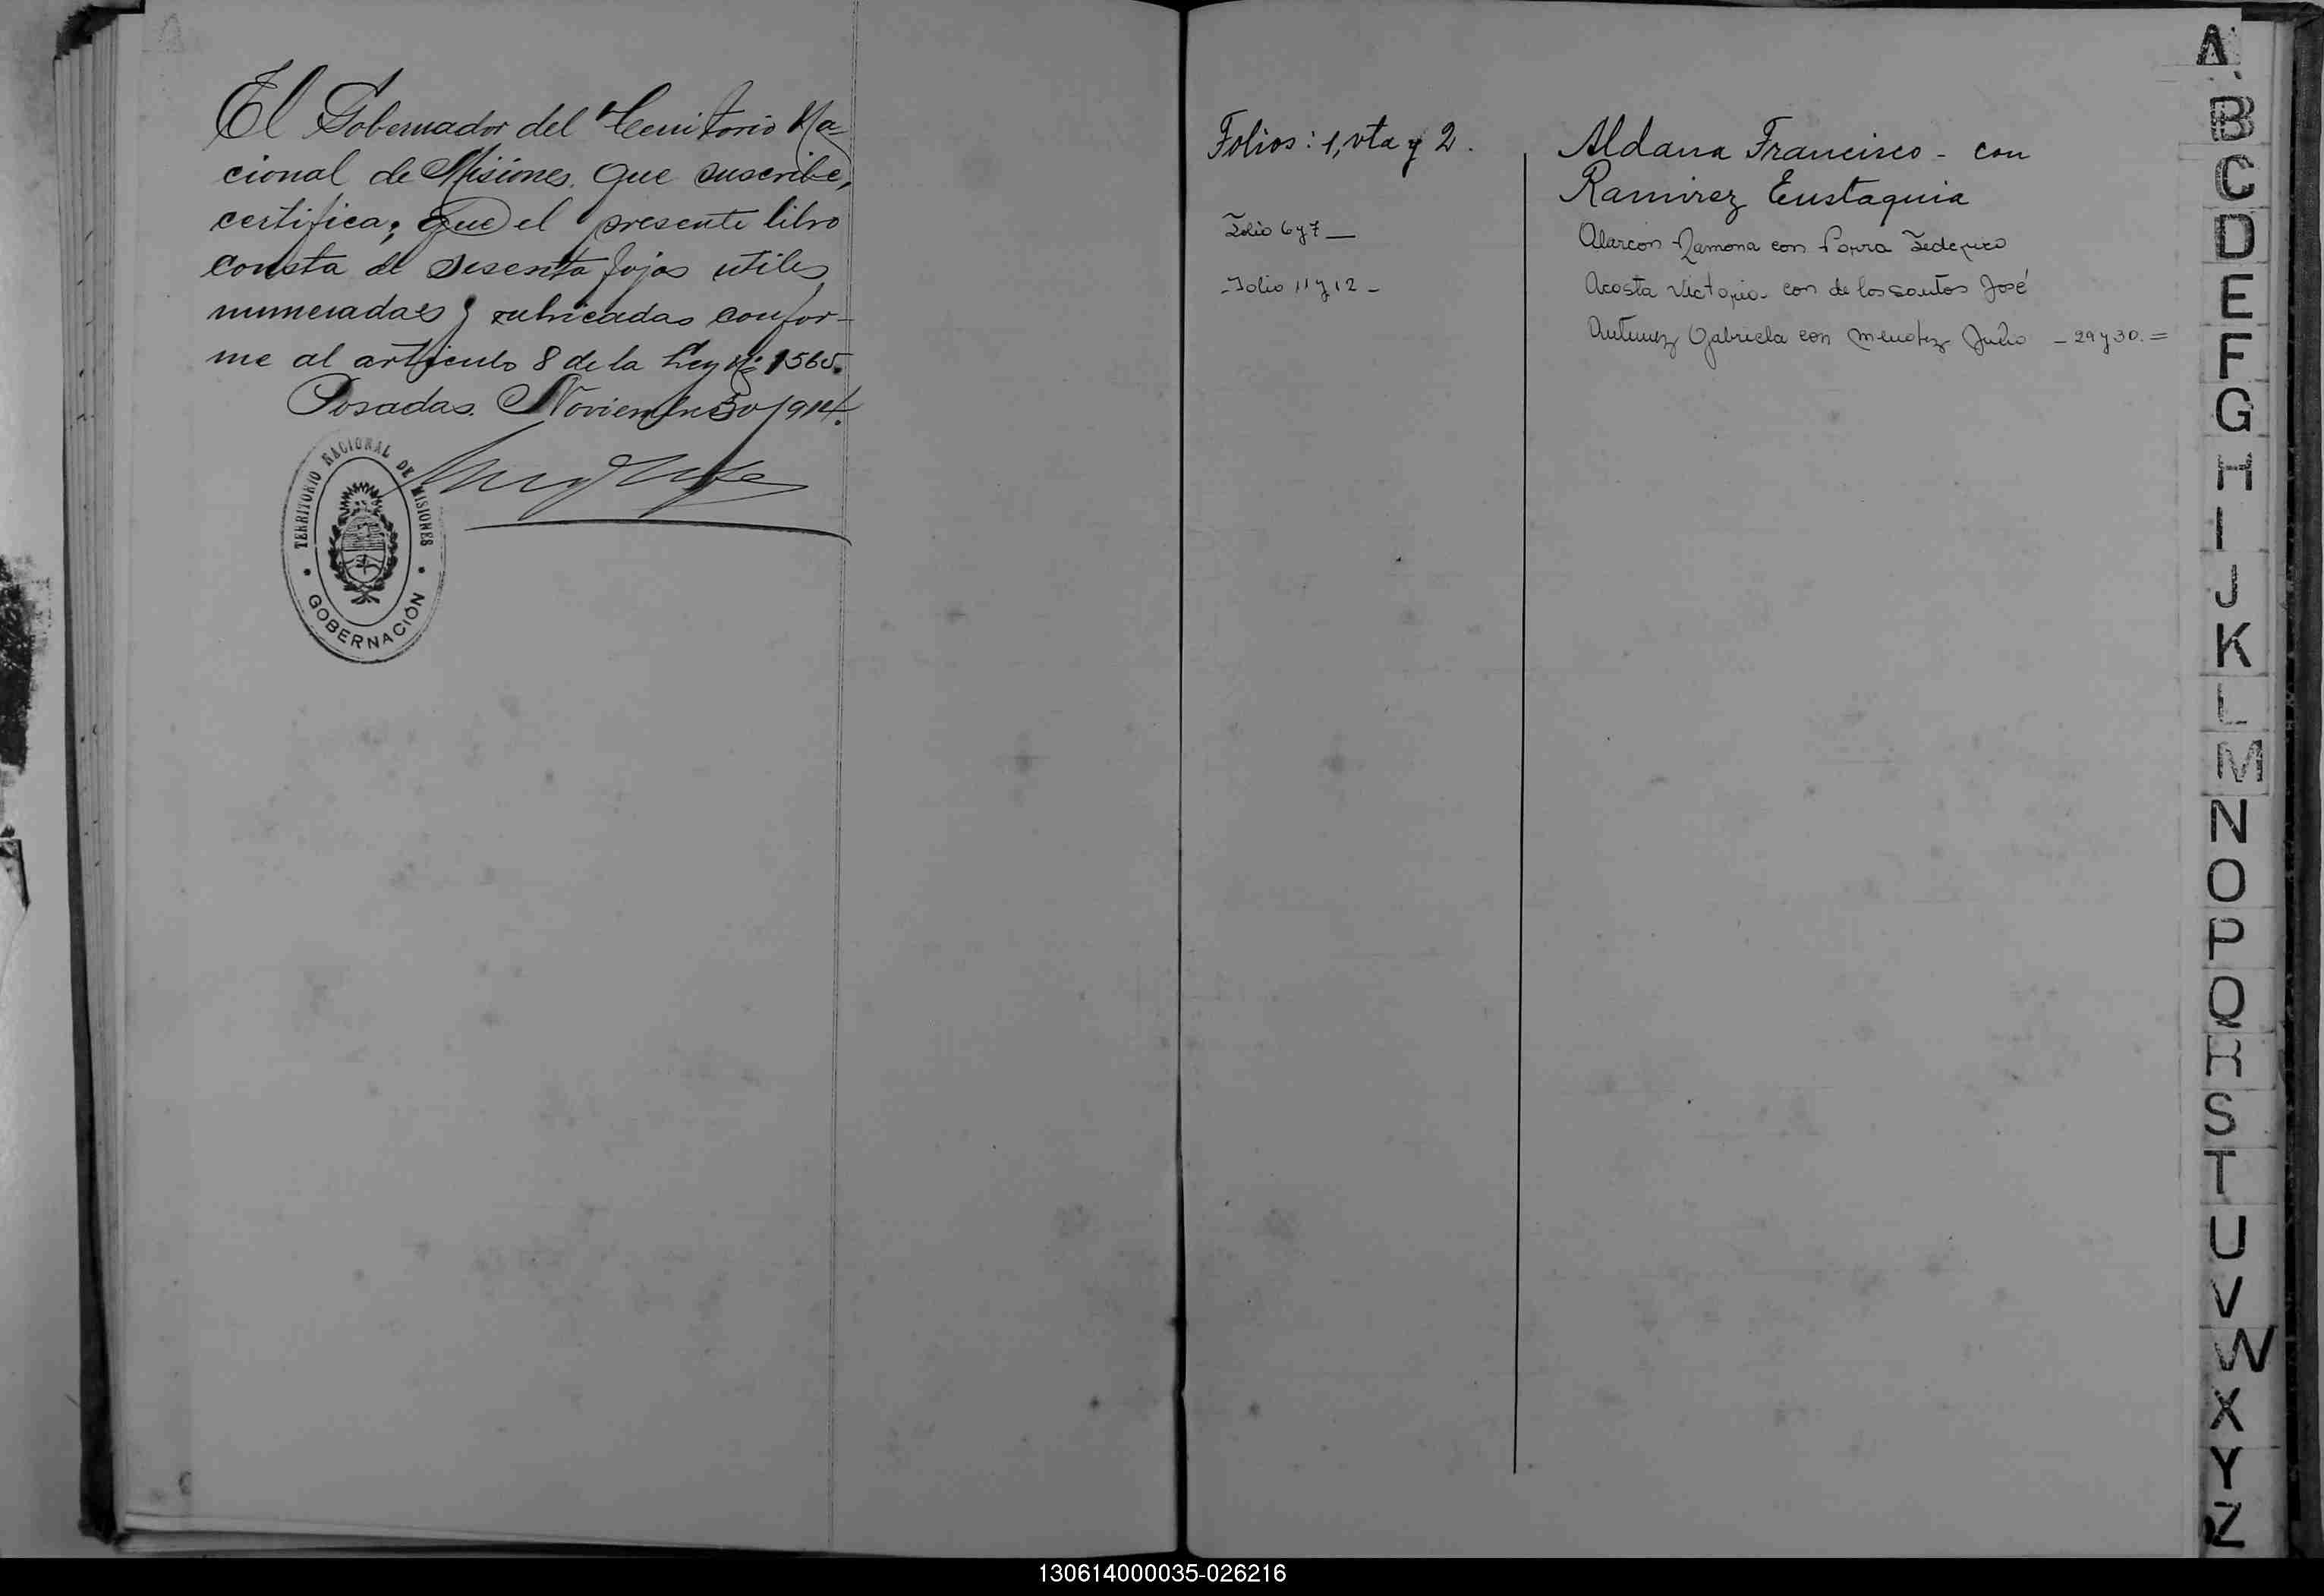 El Gobernador del Territorio Na-
cional de Misiones. Que suscribe,
certifica; Que el presente libro
consta de sesenta fojas utiles
numeradas y rubricadas confor-
me al articulo 8 de la Ley Nº 1565.
Posadas. Noviembre 30/914.
TERRITORIO NACIONAL DE MISIONES
GOBERNACIÓN
Folios: 1, vta y 2.
Aldana Francisco - con
Ramirez Eustaquia
Folio 6 y 7 —
Alarcon Ramona con Federico
- Folio 11 y 12 -
Acosta Victoria - con de los santos José
Antunez Gabriela con Mendez Julio - 29 y 30. =
A
B
C
D
E
F
G
H
I
J
K
L
M
N
O
P
Q
R
S
T
U
V
W
X
Y
Z
130614000035-026216